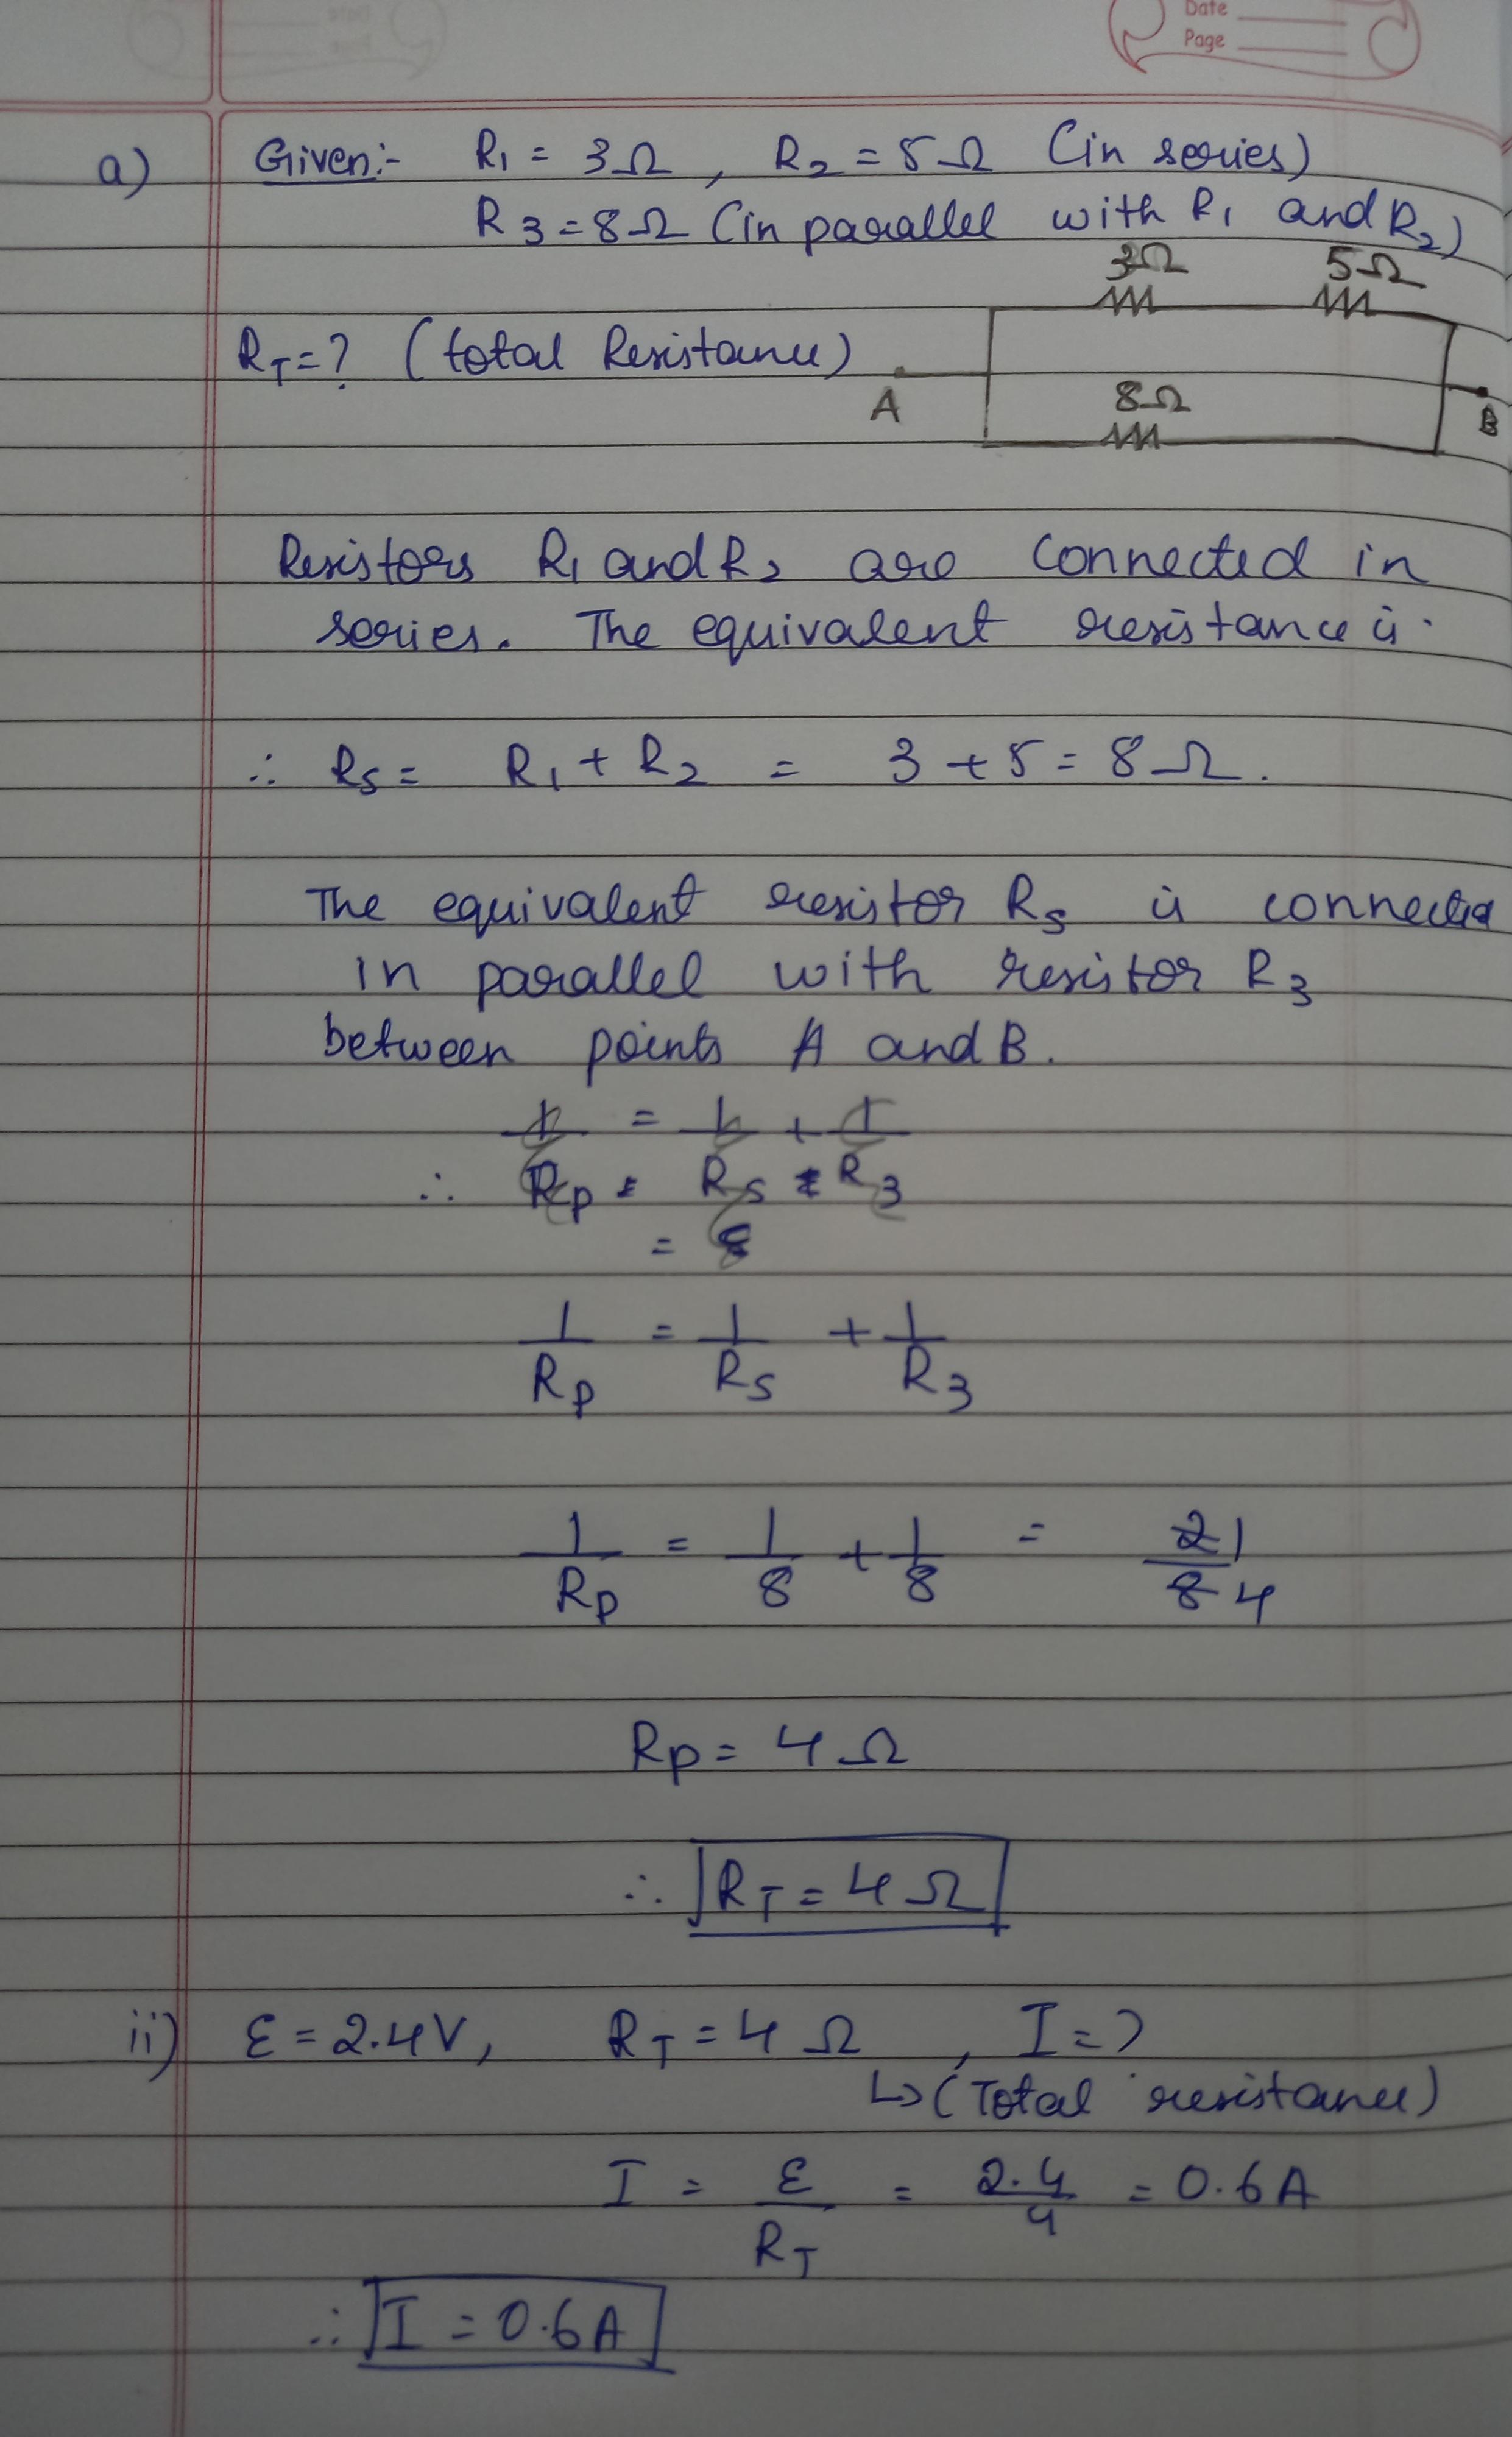 Date
Page
a) Given:- R1 = 3Ω, R2 = 5Ω (in series)
R3 = 8Ω (in parallel with R1 and R2)
3Ω 5Ω
RT = ? (total Resistance)
A 8Ω B
Resistors R1 and R2 are connected in
series. The equivalent resistance is.
∴ RS = R1 + R2 = 3 + 5 = 8Ω.
The equivalent resistor RS is connected
in parallel with resistor R3
between points A and B.
1 = 1 + 1
∴ RP = RS + R3
=
1/RP = 1/RS + 1/R3
1/RP = 1/8 + 1/8 = 2/8 1/4
RP = 4Ω
∴ RT = 4Ω
ii) ε = 2.4V, RT = 4Ω, I = ?
↳ (Total resistance)
I = ε/RT = 2.4/4 = 0.6A
∴ I = 0.6A